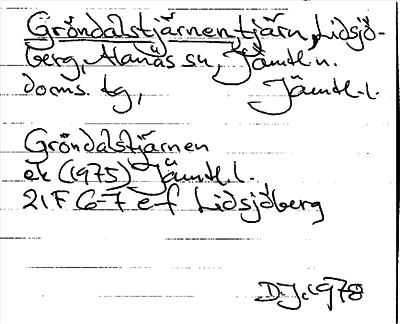 Gröndalstjärnen, tjärn, Lidsjö-
berg, Alanäs sn, Jämtl. n.
doms. tg, Jämtl. l.
Gröndalstjärnen
ek (1975) Jämtl. l.
21 F 6-7 e-f Lidsjöberg
D.J. 1978